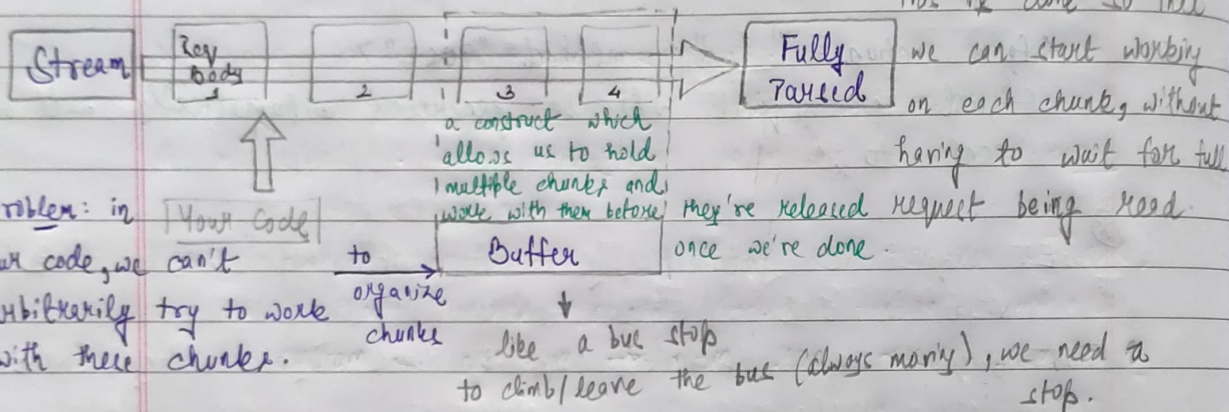 Stream
Req
Body
1
2
3
4
Fully
Parsed
we can start working
on each chunk, without
having to wait for full
request being read.
a construct which
allows us to hold
multiple chunks and
work with them before they're released
once we're done.
Buffer
Your Code
roblem: in
code, we can't
try to work
with these chunks.
to
organize
chunks
like a bus stop
to climb/leave the bus (always moving), we need a
stop.